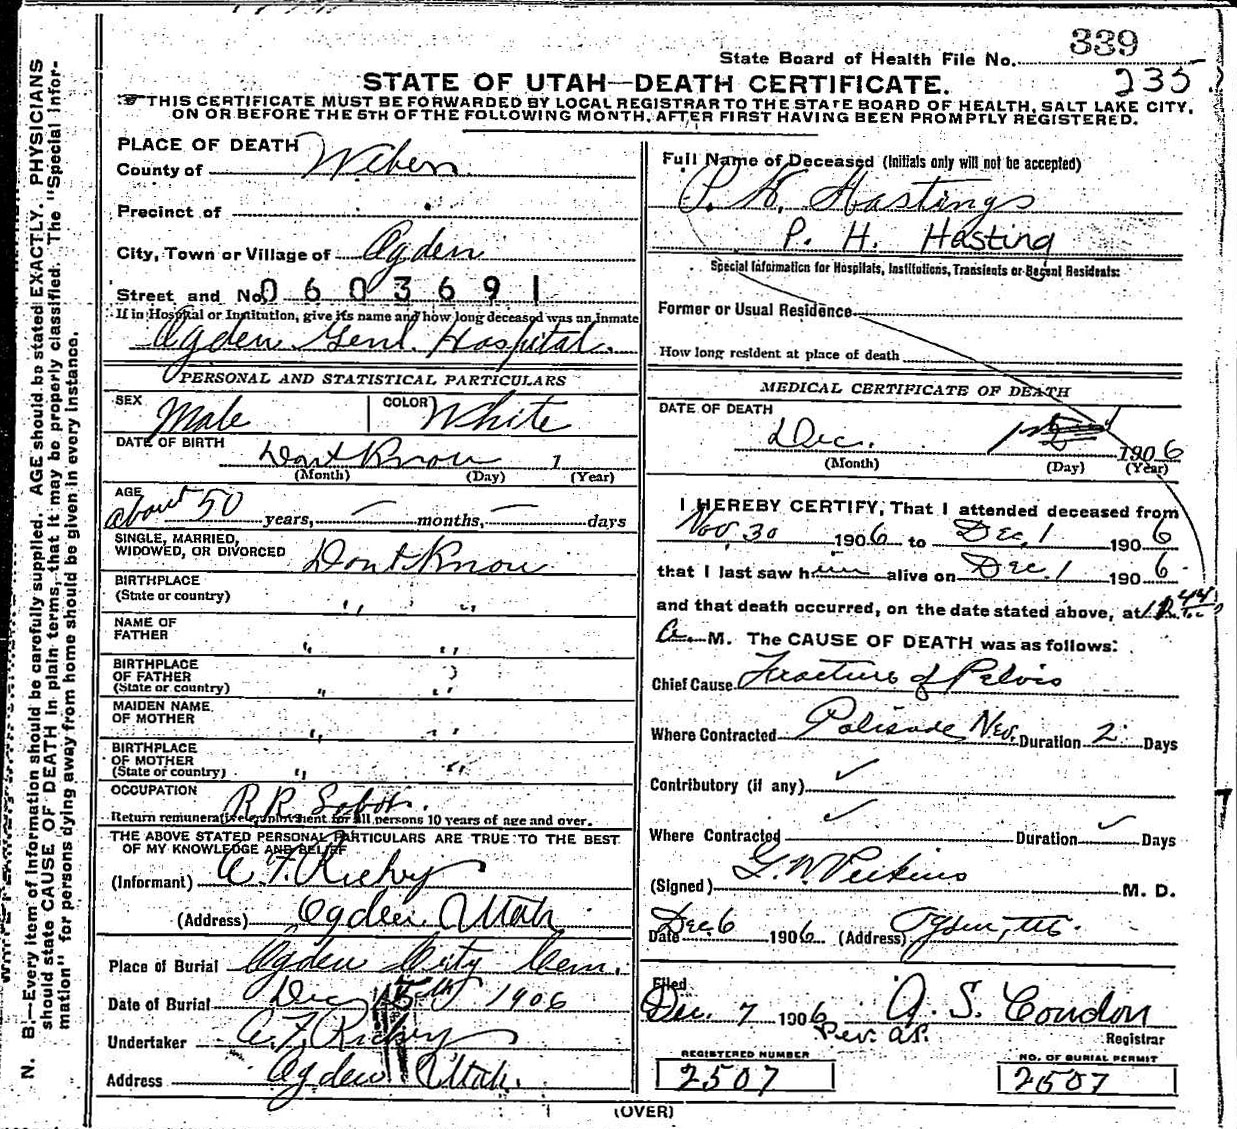 339
State Board of Health File No.
235
STATE OF UTAH—DEATH CERTIFICATE.
THIS CERTIFICATE MUST BE FORWARDED BY LOCAL REGISTRAR TO THE STATE BOARD OF HEALTH, SALT LAKE CITY,
ON OR BEFORE THE 5TH OF THE FOLLOWING MONTH, AFTER FIRST HAVING BEEN PROMPTLY REGISTERED.
N. B.—Every item of information should be carefully supplied. AGE should be stated EXACTLY. PHYSICIANS
should state CAUSE OF DEATH in plain terms, that it may be properly classified. The "Special Infor-
mation" for persons dying away from home should be given in every instance.
PLACE OF DEATH
County of Weber
Precinct of
City, Town or Village of Ogden
Street and No. 0603691
If in Hospital or Institution, give its name and how long deceased was an inmate
Ogden Genl. Hospital.
PERSONAL AND STATISTICAL PARTICULARS
SEX Male COLOR White
DATE OF BIRTH Dont Know 1
(Month) (Day) (Year)
AGE
about 50 years, — months, — days
SINGLE, MARRIED,
WIDOWED, OR DIVORCED Dont Know
BIRTHPLACE
(State or country) " "
NAME OF
FATHER " "
BIRTHPLACE
OF FATHER
(State or country) " "
MAIDEN NAME
OF MOTHER " "
BIRTHPLACE
OF MOTHER
(State or country) " "
OCCUPATION R R
Return remunerative employment for all persons 10 years of age and over.
THE ABOVE STATED PERSONAL PARTICULARS ARE TRUE TO THE BEST
OF MY KNOWLEDGE AND BELIEF
(Informant)
(Address) Ogden Utah
Place of Burial Ogden City Cem.
Date of Burial Dec 1906
Undertaker
Address Ogden Utah.
Full Name of Deceased (Initials only will not be accepted)
P. H. Hastings
P. H. Hasting
Special Information for Hospitals, Institutions, Transients or Recent Residents:
Former or Usual Residence
How long resident at place of death
MEDICAL CERTIFICATE OF DEATH
DATE OF DEATH
Dec. 1906
(Month) (Day) (Year)
I HEREBY CERTIFY, That I attended deceased from
Nov. 30 1906 to Dec. 1 1906
that I last saw him alive on Dec. 1 1906
and that death occurred, on the date stated above, at
a. M. The CAUSE OF DEATH was as follows:
Chief Cause Fracture of Pelvis
Where Contracted Palisade Nev. Duration 2 Days
Contributory (if any)
Where Contracted Duration Days
(Signed) G. W. Perkins M. D.
Date Dec 6 1906 (Address) Ogden,
Filed
Dec. 7 1906 A. S. Condon
Registrar
REGISTERED NUMBER
2507
NO. OF BURIAL PERMIT
2507
(OVER)